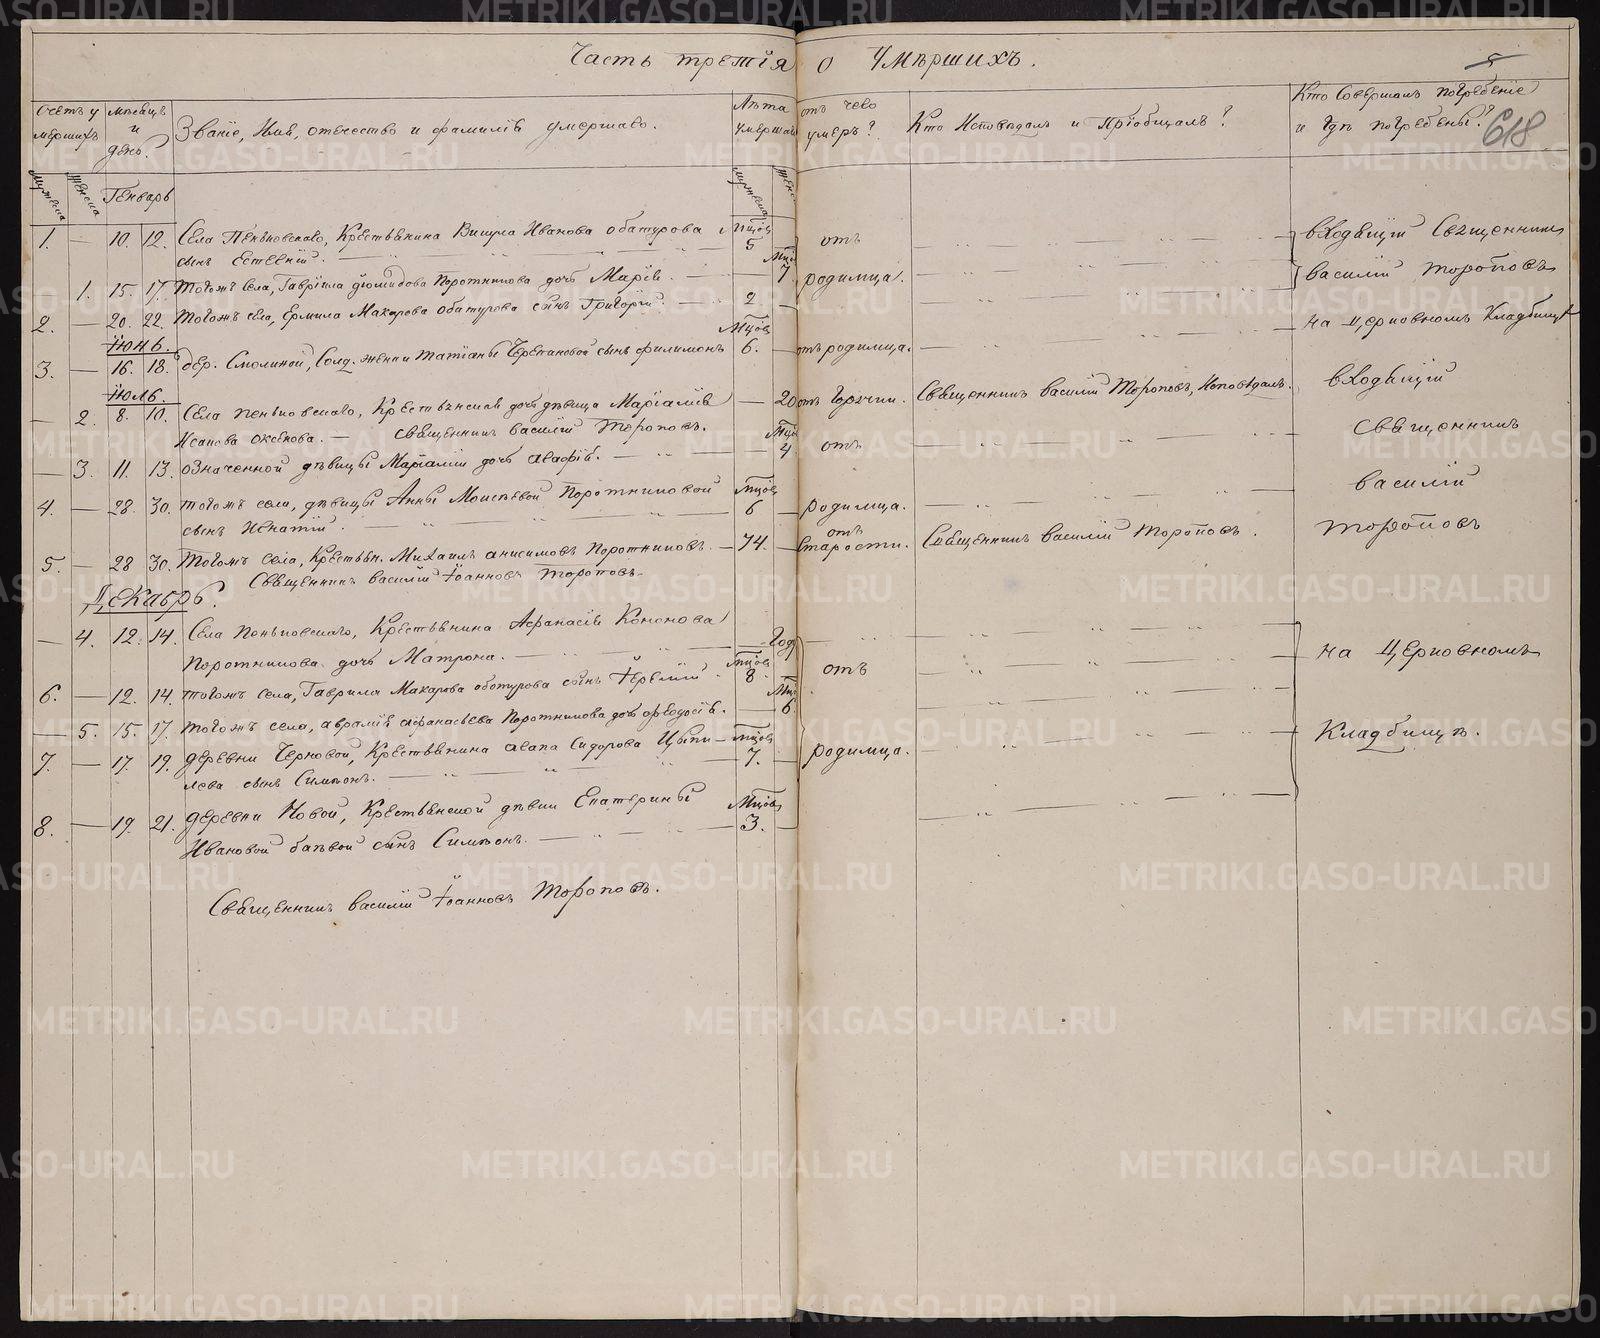 Часть третія о умѣршихъ.
5
618
Счетъ умершихъ
Мѣсяцъ и день.
Званіе, Имя, отечество и фамилія умершаго.
Лѣта умершаго
отъ чего умеръ?
Кто Исповѣдалъ и Пріобщалъ?
Кто Совершалъ погребеніе и гдѣ погребены?
Мужеска
Женска
Генварь
Мужеска
Женс
1. — 10. 12. Села Пеньковскаго, Крестьянина Викула Иванова Обатурова Мѣцов 5 отъ входящій Священникъ
сынъ Естевній. Мцо
1. 15. 17. Тогожъ села, Гавріила Діомидова Поротникова дочь Марія. 7 родимца. Василій Тороповъ
2. — 20. 22. Тогожъ села, Ермила Макарова Обатурова сынъ Григорій. 2 на церковномъ Кладбищѣ
Іюнь. Мѣцов
3. — 16. 18. дер. Смолиной, Солд. женки Татіаны Черепановой сынъ Филимонъ 6. отъ родимца.
Іюль.
— 2. 8. 10. Села Пеньковскаго, Крестьянская дочь дѣвица Маріамія — 20 отъ Горячки. Священникъ Василій Тороповъ, Исповѣдалъ. входящій
Исакова Оксенова. — Священникъ Василій Тороповъ. Мѣцо Священникъ
— 3. 11. 13. означенной дѣвицы Маріаміи дочь Агафія. 4. отъ
4. — 28. 30. тогожъ села, дѣвицы Анны Моисѣевой Поротниковой Мѣцов 6 родимца. Василій
сынъ Игнатій.
5. — 28 30. Тогожъ села, Крестьян. Михаилъ Анисимовъ Поротниковъ. — 74. отъ Старости. Священникъ Василій Тороповъ. Тороповъ
Священникъ Василій Іоанновъ Тороповъ.
Декабрь.
— 4. 12. 14. Села Пеньковскаго, Крестьянина Афанасія Кононова
Поротникова дочь Матрона. Году отъ на Церковномъ
6. — 12. 14. тогожъ села, Гаврила Макарова Обатурова сынъ Іеремій. Мѣцов 8. Мѣц
— 5. 15. 17. тогожъ села, Аврамія Афанасьева Поротникова дочь Ѳеодосія. — 6. Кладбищѣ.
7. — 17. 19. деревни Черновой, Крестьянина Агапа Сидорова Цыпи- Мѣцов 7. родимца.
лева сынъ Симеонъ.
8. — 19. 21. деревни Новой, Крестьянской дѣвки Екатерины Мѣцов 3.
Ивановой Баевой сынъ Симеонъ.
Священникъ Василій Іоанновъ Тороповъ.
METRIKI.GASO-URAL.RU